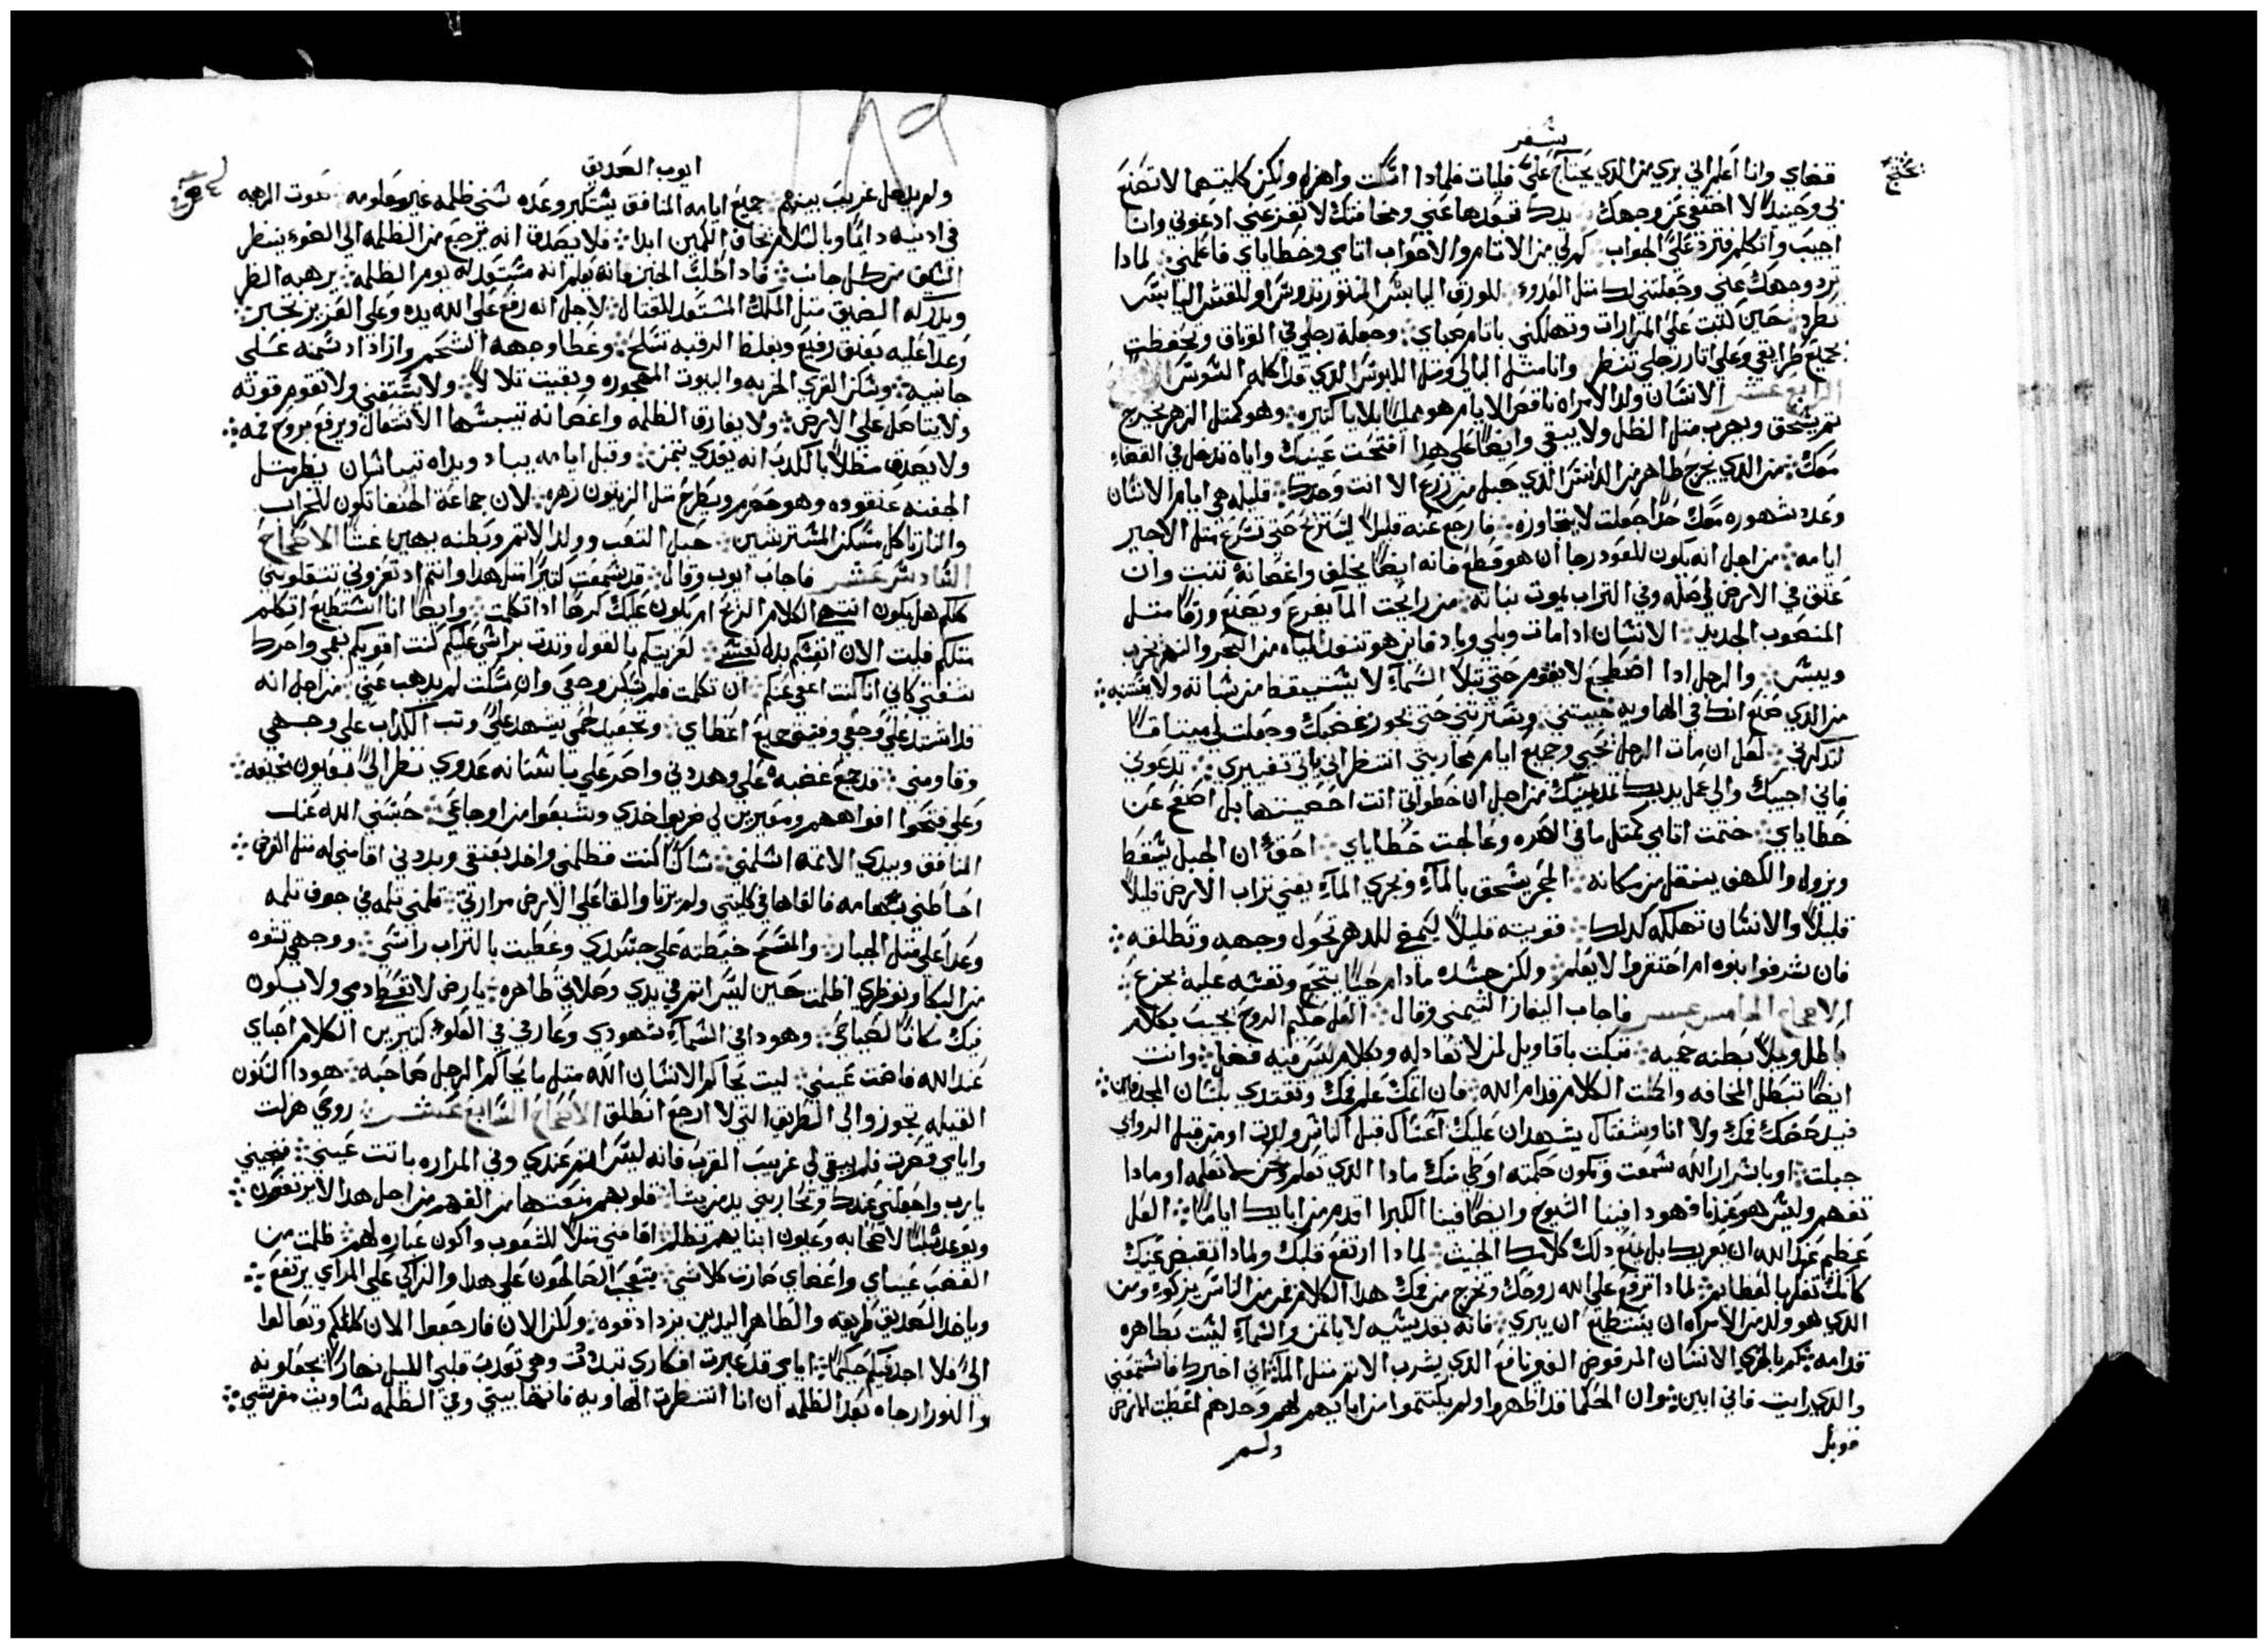 بسفر
قضاي وانا اعلم اني بري من الدي يحتاج علي فليات فلمادا اسكت واهزا ولكن كلتيهما لا تصنع
لي وحينيدًا لا اختفي عن وجهك يدك فبعدها عني ومخافتك لا تفزعني ادعوني وانا
اجيب واتكلم فترد علي الجواب كم لي من الاتام والاحواب اتامي وخطاياي فاعلمني لمادا
ترد وجهك عني وجعلتني لك متل العدو للورق اليابس المنتور تدوس او للقش اليابس
تطرد حين كتبت علي المرارات وتهلكني باتام صباي وجعلة رجلي في الوتاق وتحفظت
بجميع طرايقي وعلي اتار رجلي تنظر وانا متل البالي ومتل اللبوس الدي قد اكله السوس
الرابع عشر الانسان ولد الامراه ناقص الايام هو مملو بلايا كتيره وهو كمتل الزهر يخرج
تم يسحق ويهرب متل الظل ولا يبقي وايضًا علي هدا افتحت عينيك واياه تدخل في القضاء
معك من الدي يخرج طاهر من الدنس الدي حبل من زرع الا انت وحدك قليله هي ايام الانسان
وعدد شهوره معك حدًا جعلت لا يتجاوزه فارجع عنه قليلًا ليستريح حتي تسرع متل الاجير
ايامه من اجل انه يكون للعود رجا ان هو قطع فانه ايضًا يخلف واغصانه تنبت وان
عتق في الارض اصله وفي التراب يموت نباته من رايحت الما يفرع ويصنع ورقًا متل
المنصوب الجديد الانسان ادا مات وبلي وباد فاين هو تنشف المياه من البحر والنهر يخرب
وييبس والرجل ادا اضطجع لا يقوم حتي تبلا السماء لا يستيقظ من سباته ولا ينتبه
من الدي صنع انك في الهاويه خبيتني وتسترتني حتي يجوز غضبك وجعلت لي ميتاقًا
لتدكرني لعل ان مات الرجل يحيي وجميع ايام محاربتي انتظر اني ياتي تغييري تدعوني
فاني اجيبك والي عمل يديك تمد يمينك من اجل ان خطواتي انت احصيتها بل اصفح عن
خطاياي ختمت اتامي كمتل ما في الصره وعالجت خطاياي احقٌ ان الجبل يسقط
ويزول والكهف ينتقل من مكانه الحجر يسحق بالماء ويجري الماء يفني تراب الارض قليلًا
قليلًا والانسان تهلكه كدلك قويته قليلًا ليمضي للدهر تحول وجهه وتطلقه
فان شرفوا بنوه ام احتقروا لا يعلم ولكن جسده مادام حيًا يتجع ونفسه عليه تجزع
الاصحاح الخامس عشر فاجاب اليفاز التيمني وقال العل حكيم الروح يجيب بكلام
باطل ويملا بطنه حميه تبكت باقاويل لمن لا تعادله وبكلام ليس فيه فضل وانت
ايضًا تبطل المخافه واكترت الكلام قدام الله فان اتمك علم فمك وتقتدي بلسان المجدفين
فيدحضك فمك ولا انا وشفتاك يشهدان عليك اعساك قبل الناس ولدت او من قبل الروابي
جبلت او باسرار الله سمعت وتكون حكمته اوطي منك مادا الدي تعلم ونحن لا نعلمه او مادا
تفهم وليس هو عندنا هودا فينا الشيوخ وايضًا فينا الكبرا اقدم من ابايك ايامًا العل
عظيم عند الله ان يعزيك بل يمنع دلك كلامك الخبث لمادا ارتفع قلبك ولمادا تغمض عينيك
كانك تفكر بالعظايم لمادا ترفع علي الله روحك وتخرج من فمك هدا الكلام فمن من الناس يزكوا ومن
الدي هو ولد من الامراه ان يستطيع ان يبري فانه بقديسيه لا ياتمن والسماء ليست بطاهره
قدامه فكم بالحري الانسان المرفوض الغير نافع الدي يشرب الاتم متل الماء اني اخبرك فاستمعني
والدي رايت فاني ابين وان الحكما قد اظهروا ولم يكتموا من ابايهم لهم وحدهم اعطيت الارض
قوبل
ولم
ايوب الصديق
ولم يدخل غريب بينهم جميع ايامه المنافق يستكبر وعده سني ظلمه غير معلومه صوت الرهبه
في ادنيه دايمًا وبالسلام يخاف الكمين ابدا فلا يصدق انه يرجع من الظلمه الي الضوء ينتظر
السيف من كل جانب فادا طلب الخبز فانه يعلم انه مستعد له يوم الظلمه يرهبه الضر
ويدركه الضيق متل الملك المستعد للقتال لاجل انه رفع علي الله يده وعلي العزيز تجبر
وعدا عليه بعنق رفيع وبغلظ الرقبه تسلح وغطا وجهه الشحم وازاد دسمه علي
جانبيه وسكن القري الخربه والبيوت المهجوره وبقيت تلالًا ولا يستغني ولا تقوم قوته
ولا يتاصل علي الارض ولا يفارق الظلمه واغصانه تيبسها الاشتعال ويرفع بروح فمه
ولا يصدق مضللًا بالكدب انه يفدي بتمن وقبل ايامه يباد ويداه تيباسان ينظر متل
الجفنه عنقوده وهو حصرم ويطرح متل الزيتون زهره لان جماعة الحنفا تكون للخراب
والنار تاكل مسكن المسترشين حبل التعب وولد الاتم وبطنه يهين غشًا الاصحاح
السادس عشر فاجاب ايوب وقال قد سمعت كتيرًا متل هدا وانتم ادتعزوني تتقلوني
كلكم هل يكون انتها الكلام الريح ام يكون عليك كرهًا ادا تكلمت وايضًا انا استطيع اتكلم
متلكم فليت الان انفسكم بدل نفسي لعزيتكم بالقول وندت براسي عليكم كنت اقويكم بفمي واحرك
شفتي كاني انا كنت اعفي عنكم ان تكلمت فلم يسكن وجعي وان سكت لم يدهب عني من اجل انه
قد اشتد علي وجعي وفتت جميع اعضاي وتجعيد لحمي يشهد علي وتب الكداب علي وجهي
وقاومني قد جمع غضبه علي وهددني واصر علي باسنانه عدوي نظر الي بعيون مخيفه
وعلي فتحوا افواههم ومعيرين لي ضربوا خدي وشبعوا من اوجاعي حبسني الله عند
المنافق وبيدي الاتمه اسلمني شاكتًا كنت فطلمني واخد بعنقي وبددني اقامني له متل الغرض
احاطني بسهامه فالقاها في كليتي ولم يرتا والقا علي الارض مرارتي تلمني تلمه في جوف تلمه
وعدا علي متل الجبار والمسح خيطته علي جسدي وغطيت بالتراب راسي ووجهي تشوه
من البكا ونواظري اظلمت حين ليس اتم في يدي وصلاتي طاهره يا ارض لا تغطي دمي ولا يكون
فيك مكانًا لصياحي وهودا في السماء شهودي وعارفي في العلو كتيرين الكلام احباي
عند الله فاضت عيني ليت يحاكم الانسان الله متل ما يحاكم الرجل صاحبه هودا السنون
القيله تجوز والي الطريق التي لا ارجع انطلق الاصحاح السابع عشر روحي هزلت
وايامي قصرت فلم يبقي لي غريب القرب فانه ليس اتم عندي وفي المراره باتت عيني فنجيني
يا رب واجعلني عندك وتحاربني يد من يشا قلوبهم منعتها من الفهم من اجل هدا لا يرتفعون
ويوعد سلبًا لاصحابه وعيون ابنايهم تظلم اقامني متلًا للشعوب واكون عباره لهم ظلمت من
الغضب عيناي واعضاي صارت كلاشي يتعجب الصالحون علي هدا والزاكي علي المراي يرتفع
وياخد الصديق طريقه والطاهر اليدين يزداد قوه ولكن الان فارجعوا الان كلكم وتعالوا
الي فلا اجد فيكم حكيمًا ايامي قد عبرت افكاري تبددت وهي تعدب قلبي الليل نهارًا يجعلونه
والنور ارجاه بعد الظلمه ان انا انتظرت الهاويه فانها بيتي وفي الظلمه ساويت مفرشي